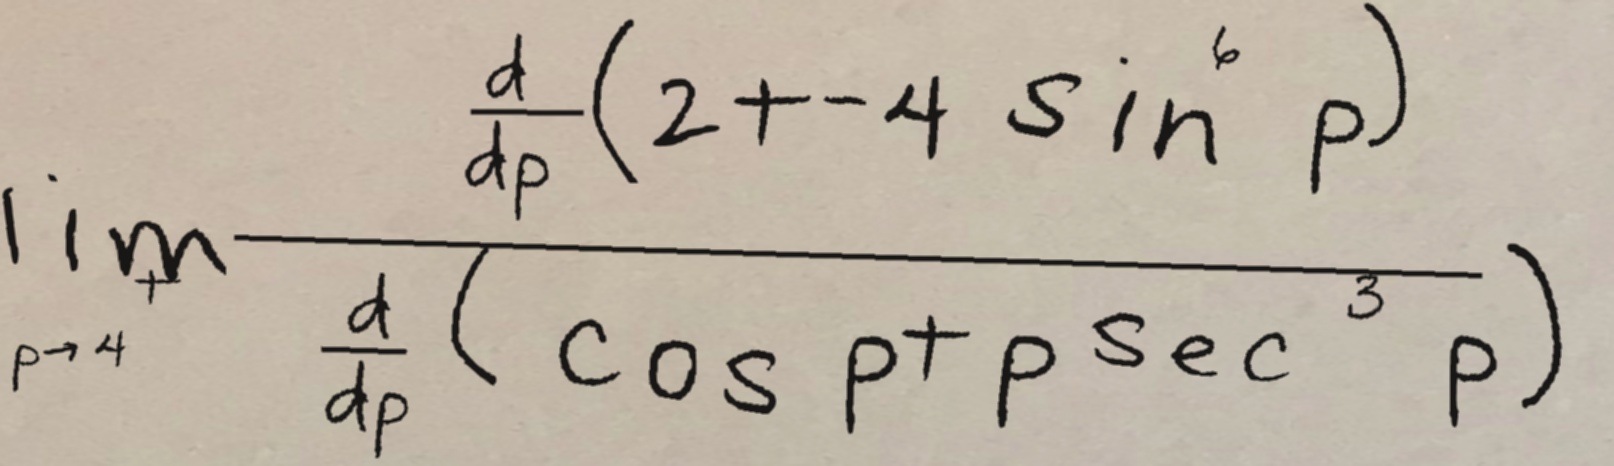 \lim_{p \to 4^+} \frac{\frac{d}{dp}(2 + -4 \sin^6 p)}{\frac{d}{dp}(\cos p + p \sec^3 p)}